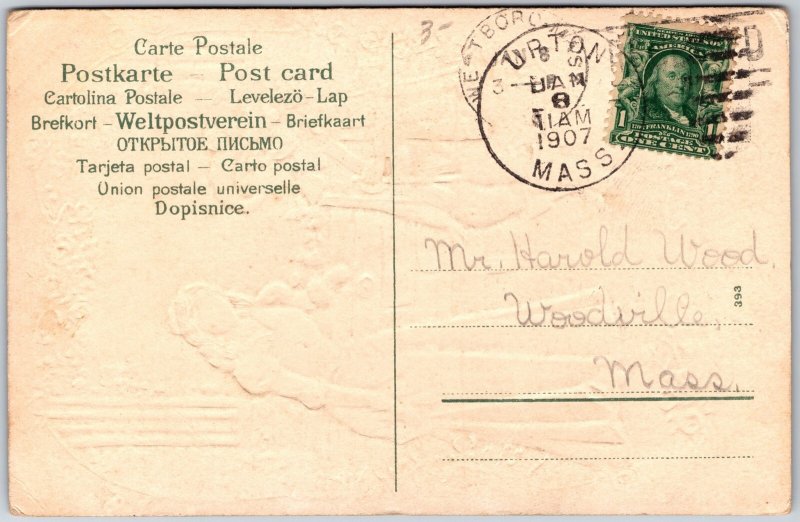 Carte Postale
Postkarte – Post card
Cartolina Postale – Levelezö-Lap
Brefkort – Weltpostverein – Briefkaart
ОТКРЫТОЕ ПИСЬМО
Tarjeta postal – Carto postal
Union postale universelle
Dopisnice.
3-
WESTBORO
MASS
UPTON
JAN
8
11AM
1907
MASS
UNITED STATES OF
AMERICA
1 FRANKLIN 1
POSTAGE
ONE CENT
Mr. Harold Wood,
Woodville,
Mass.
393